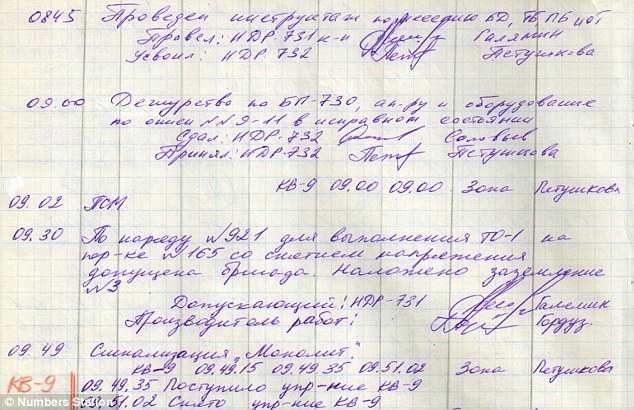 0845 Проведен инструктаж по несению БД, ТБ, ПБ
Провел: НДР 731 к-н Галянин
Усвоил: НДР. 732 Петушкова
09.00 Дежурство по БП-730, ап-ру и оборудование
по описи №№ 9-11 в исправном состоянии
Сдал: НДР 732 Соловьев
Принял: НДР-732 Петушкова
КВ-9 09.00 09.00 Зона Петушкова
09.02 ТСМ
09.30 По наряду №921 для выполнения ТО-1 на
пер-ке №165 со снятием напряжения
допущена бригада. Наложено заземление
№3
Допускающий: НДР-731
Производитель работ:
09.49 Сигнализация "Монолит".
КВ-9 09.49.15 09.49.35 09.51.02 Зона Петушкова
КВ-9 09.49.35 Поступило упр-ние КВ-9
09.51.02 Снято упр-ние КВ-9
© Numbers Station